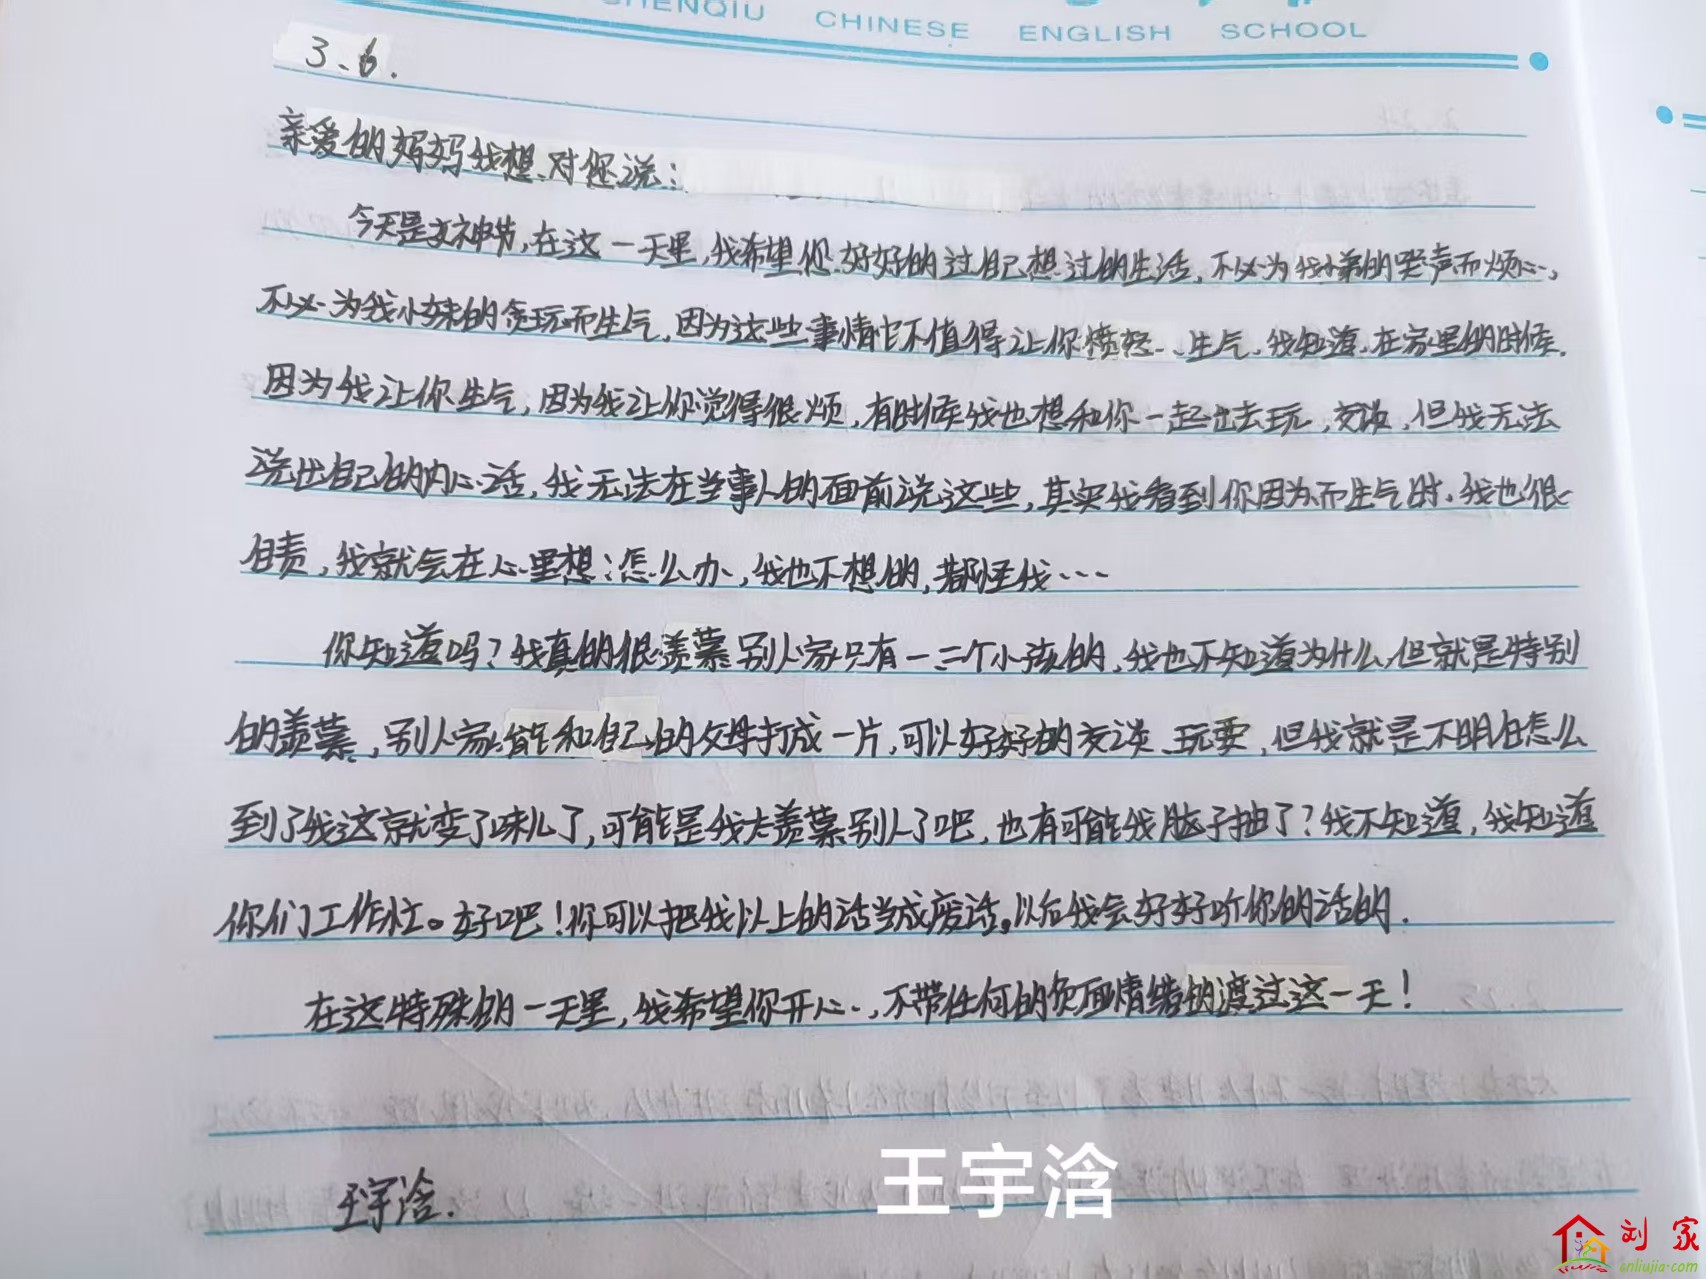 SHENQIU CHINESE ENGLISH SCHOOL
3、6.
亲爱的妈妈我想对您说：
今天是女神节,在这一天里,我希望你好好的过自己想过的生活,不必为我小弟的哭声而烦心,
不必为我小妹的贪玩而生气,因为这些事情它不值得让你愤怒、生气,我知道,在家里的时候,
因为我让你生气,因为我让你觉得很烦,有时候我也想和你一起出去玩,交谈,但我无法
说出自己的内心话,我无法在当事人的面前说这些,其实我看到你因为而生气时,我也很
自责,我就会在心里想:怎么办,我也不想的,都怪我…
你知道吗?我真的很羡慕别人家只有一二个小孩的,我也不知道为什么,但就是特别
的羡慕,别人家能和自己的父母打成一片,可以好好的交谈、玩耍,但我就是不明白怎么
到了我这就变了味儿了,可能是我太羡慕别人了吧,也有可能我脑子抽了?我不知道,我知道
你们工作忙。好吧!你可以把我以上的话当成废话。以后我会好好听你的话的.
在这特殊的一天里,我希望你开心,不带任何的负面情绪的渡过这一天!
王宇浛.
王宇浛
刘家
cnliujia.com